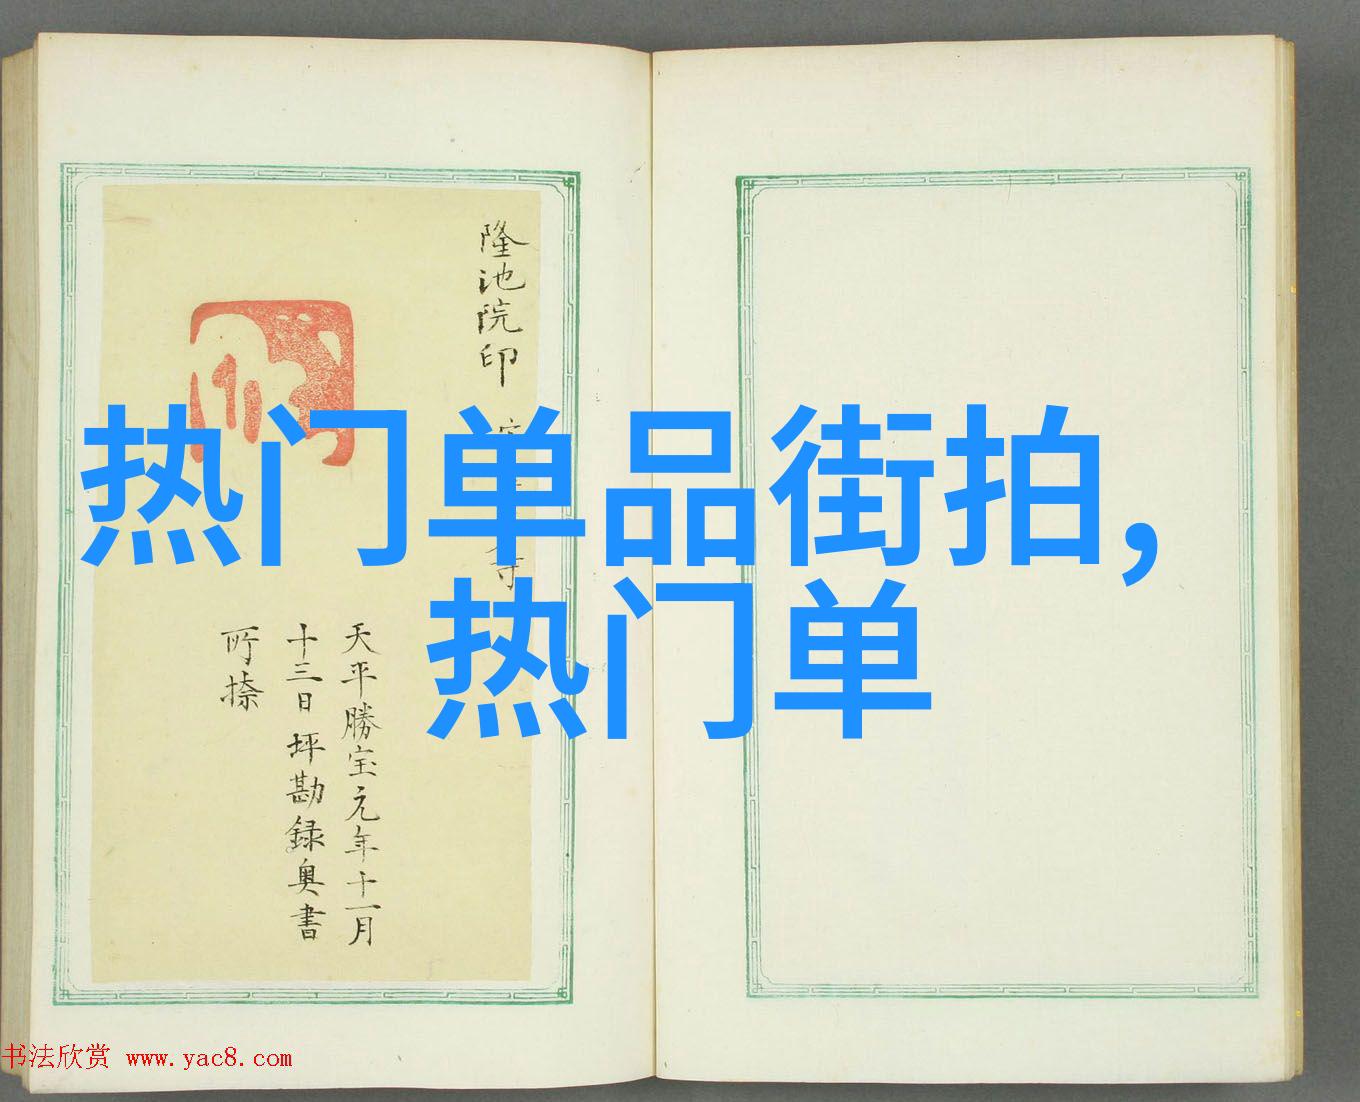 隆池院印
寺
天平勝宝元年十一月
十三日坪勘録奥書
所捺
热门单品街拍，
热门单
书法欣赏 www.yac8.com